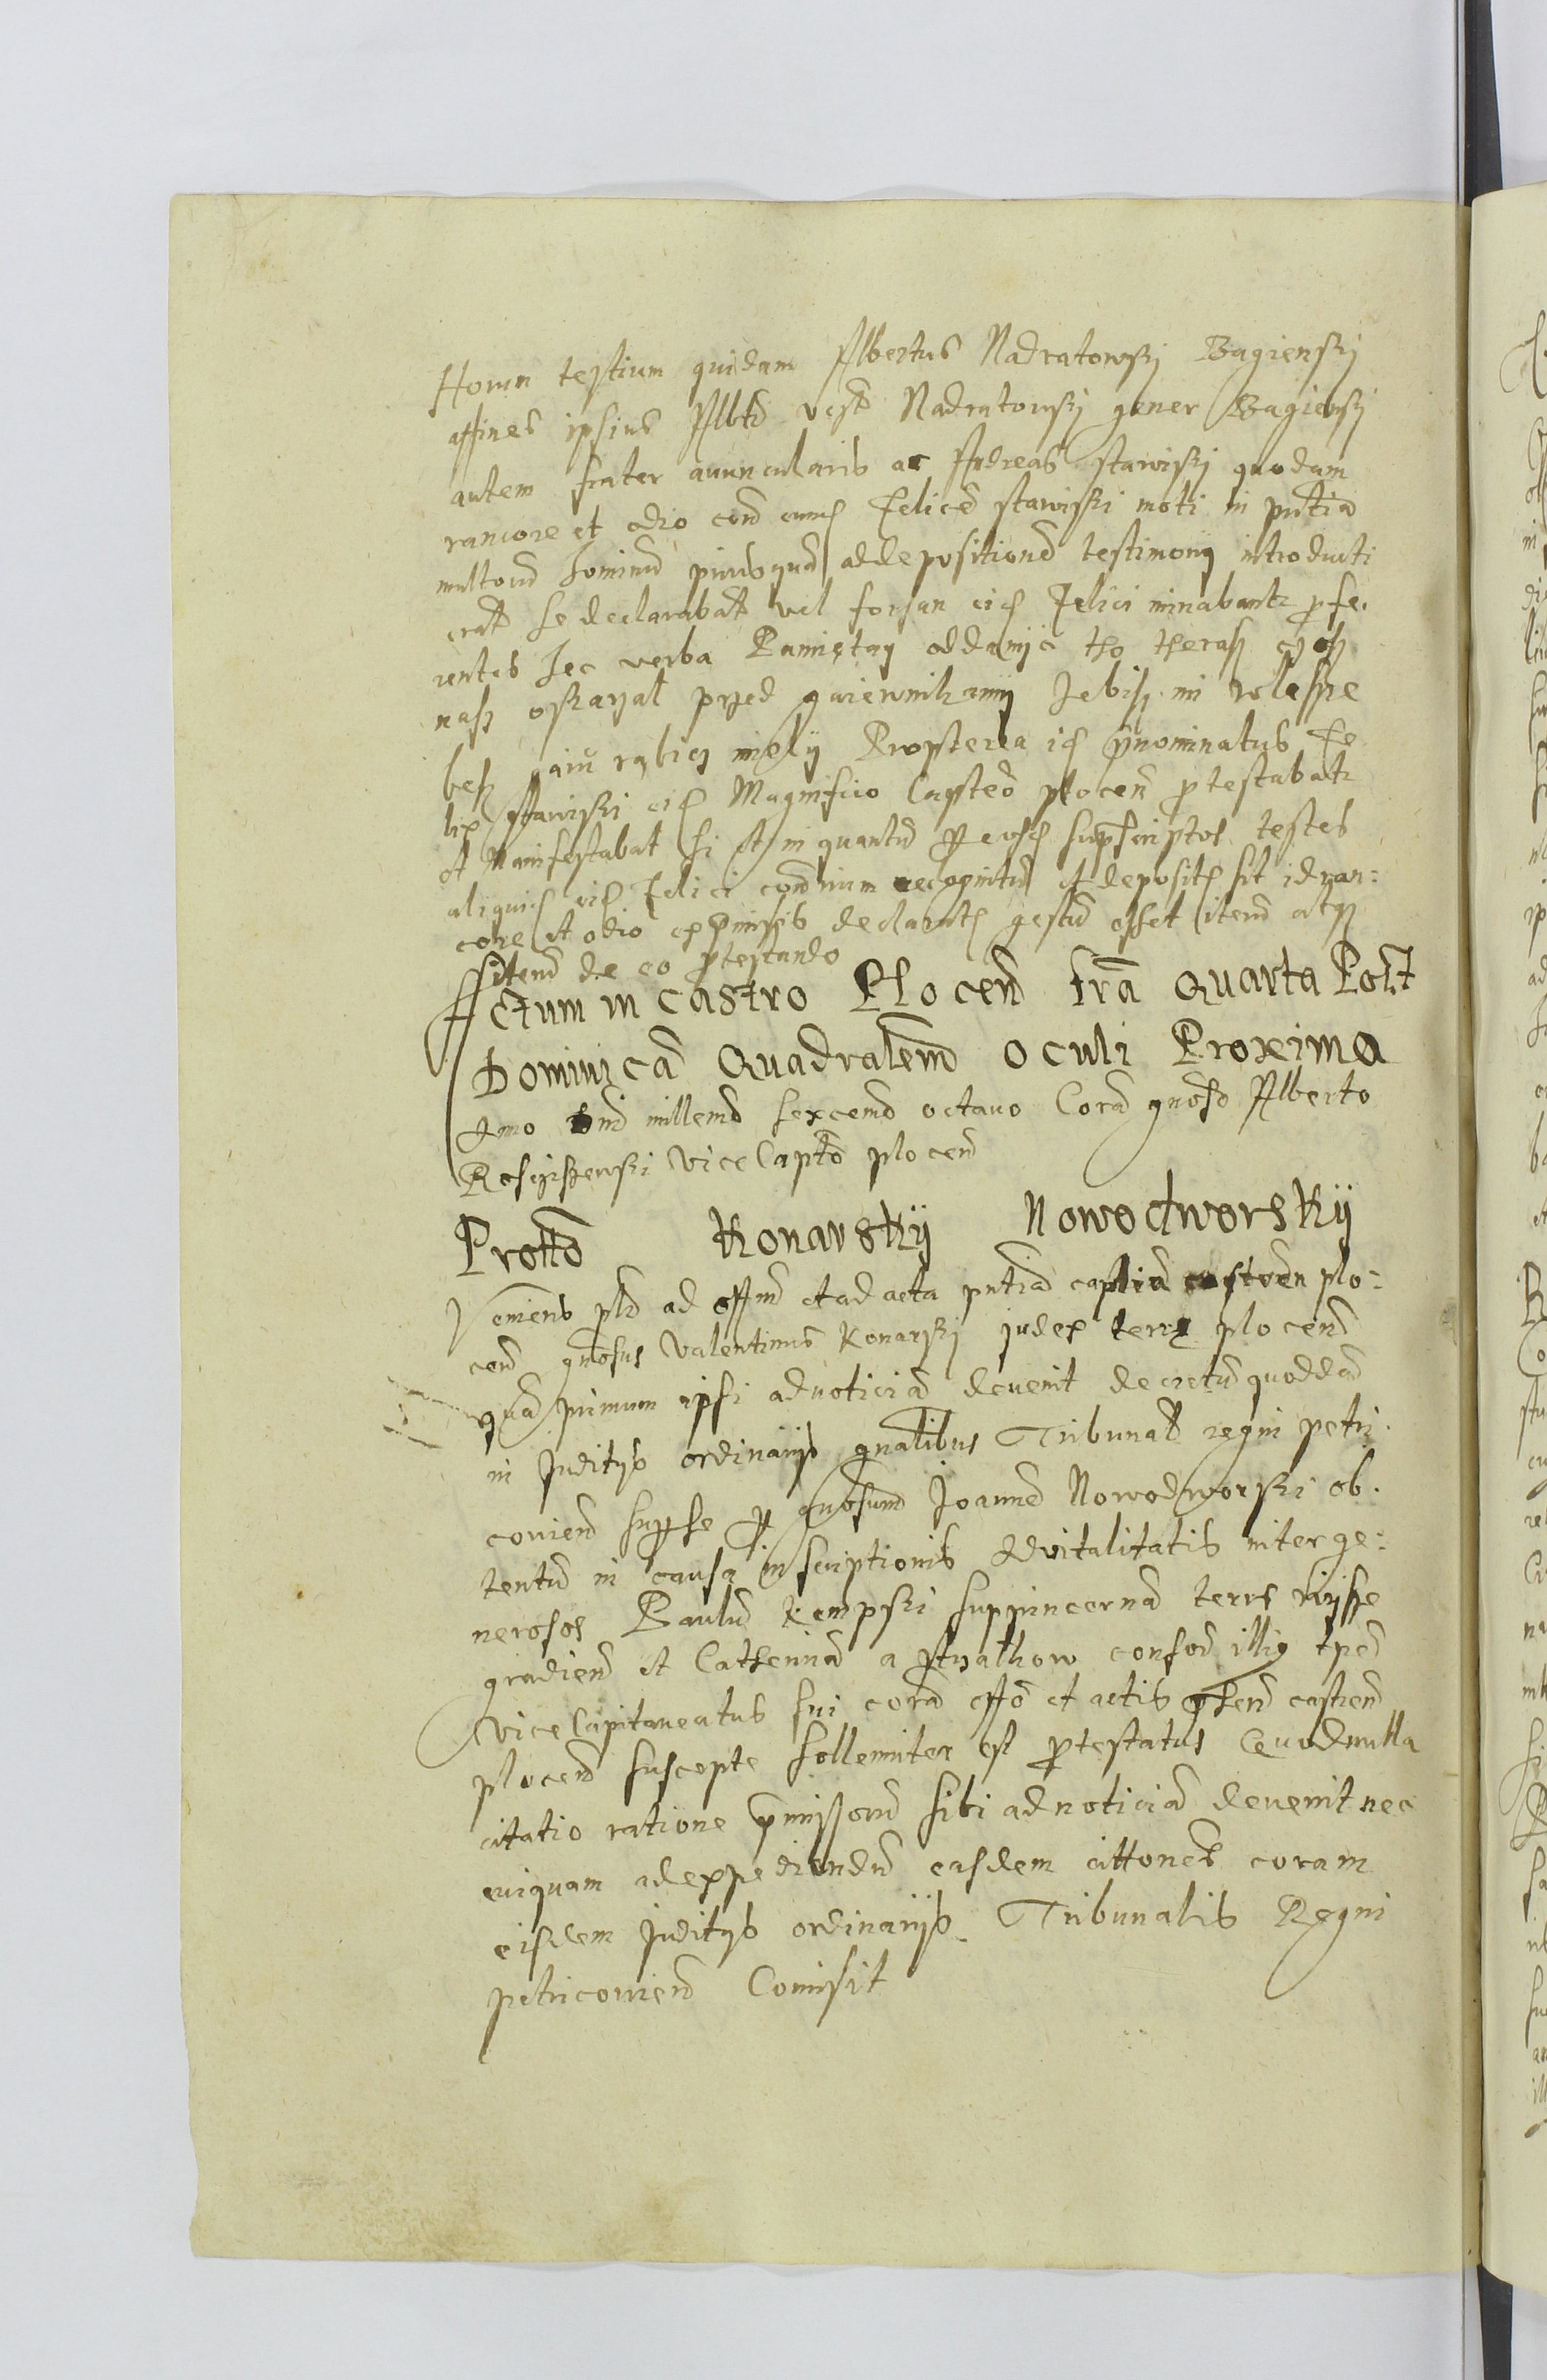 Horum testium quidam Albertus Nadratowskj Bagienskj
affines ipsius Albtd vesp Nadratowskj gener Bagienskj
autem frater auuncularis ac Andreas stawiskj quodam
rancore et odio cond eund Felicem stawiski moti in pntia
multorum hominum priusquam ad depositionem testimonij introducti
erat se declarabat vel forsan eid Felici minabantr profe-
rentes hec verba Pamiętay oddamyć tho theraz czos
nasz oskarzal przed
bysz Propterea id pnominatus Fe-
lix stawiski eid Magnifico Capteo plocen protestabatr
et Manifestabat si et in quantum per eosd suprascriptos testes
aliquid eid Felici contrarium recognitum et deposit sit id ran-
core et odio ex pmissis declarat gestum esset iterum atqz
iterum de eo protestando
Actum in Castro Plocen fria Quarta Post
Dominicam Quadralem Oculi Proxima
Anno Dni millemo sexcemo octauo Coram gnoso Alberto
Rosciszewski Vice Capto plocen
Protto Konarskij Nowodworskij
Veniens psld ad offm et ad acta pntia captlia castren plo-
cen gnosus Valentinus Konarskj judex terre plocen
quam primum ipsi ad noticiam deuenit decretum quoddam
in Juditys ordinarijs gnalibus Tribunal regni petri-
couien super se per gnosum Joannem Nowodworski ob-
tentum in causa inscriptionis aduitalitatis inter ge-
nerosos Paulum Kempski suppincernam terrs wysse-
gradien et Catherinam a Strzalkow consord illiq tped
Vice Capitaneatus sui coram offo et actis psend castrend
plocend suscepte sollemniter est protestatus Quod nulla
citatio ratione pmissorum sibi ad noticiam deuenit nec
cuiquam ad expediendum easdem cittones coram
eisdem Juditys ordinarijs Tribunalis Regni
petricouiend Comisit